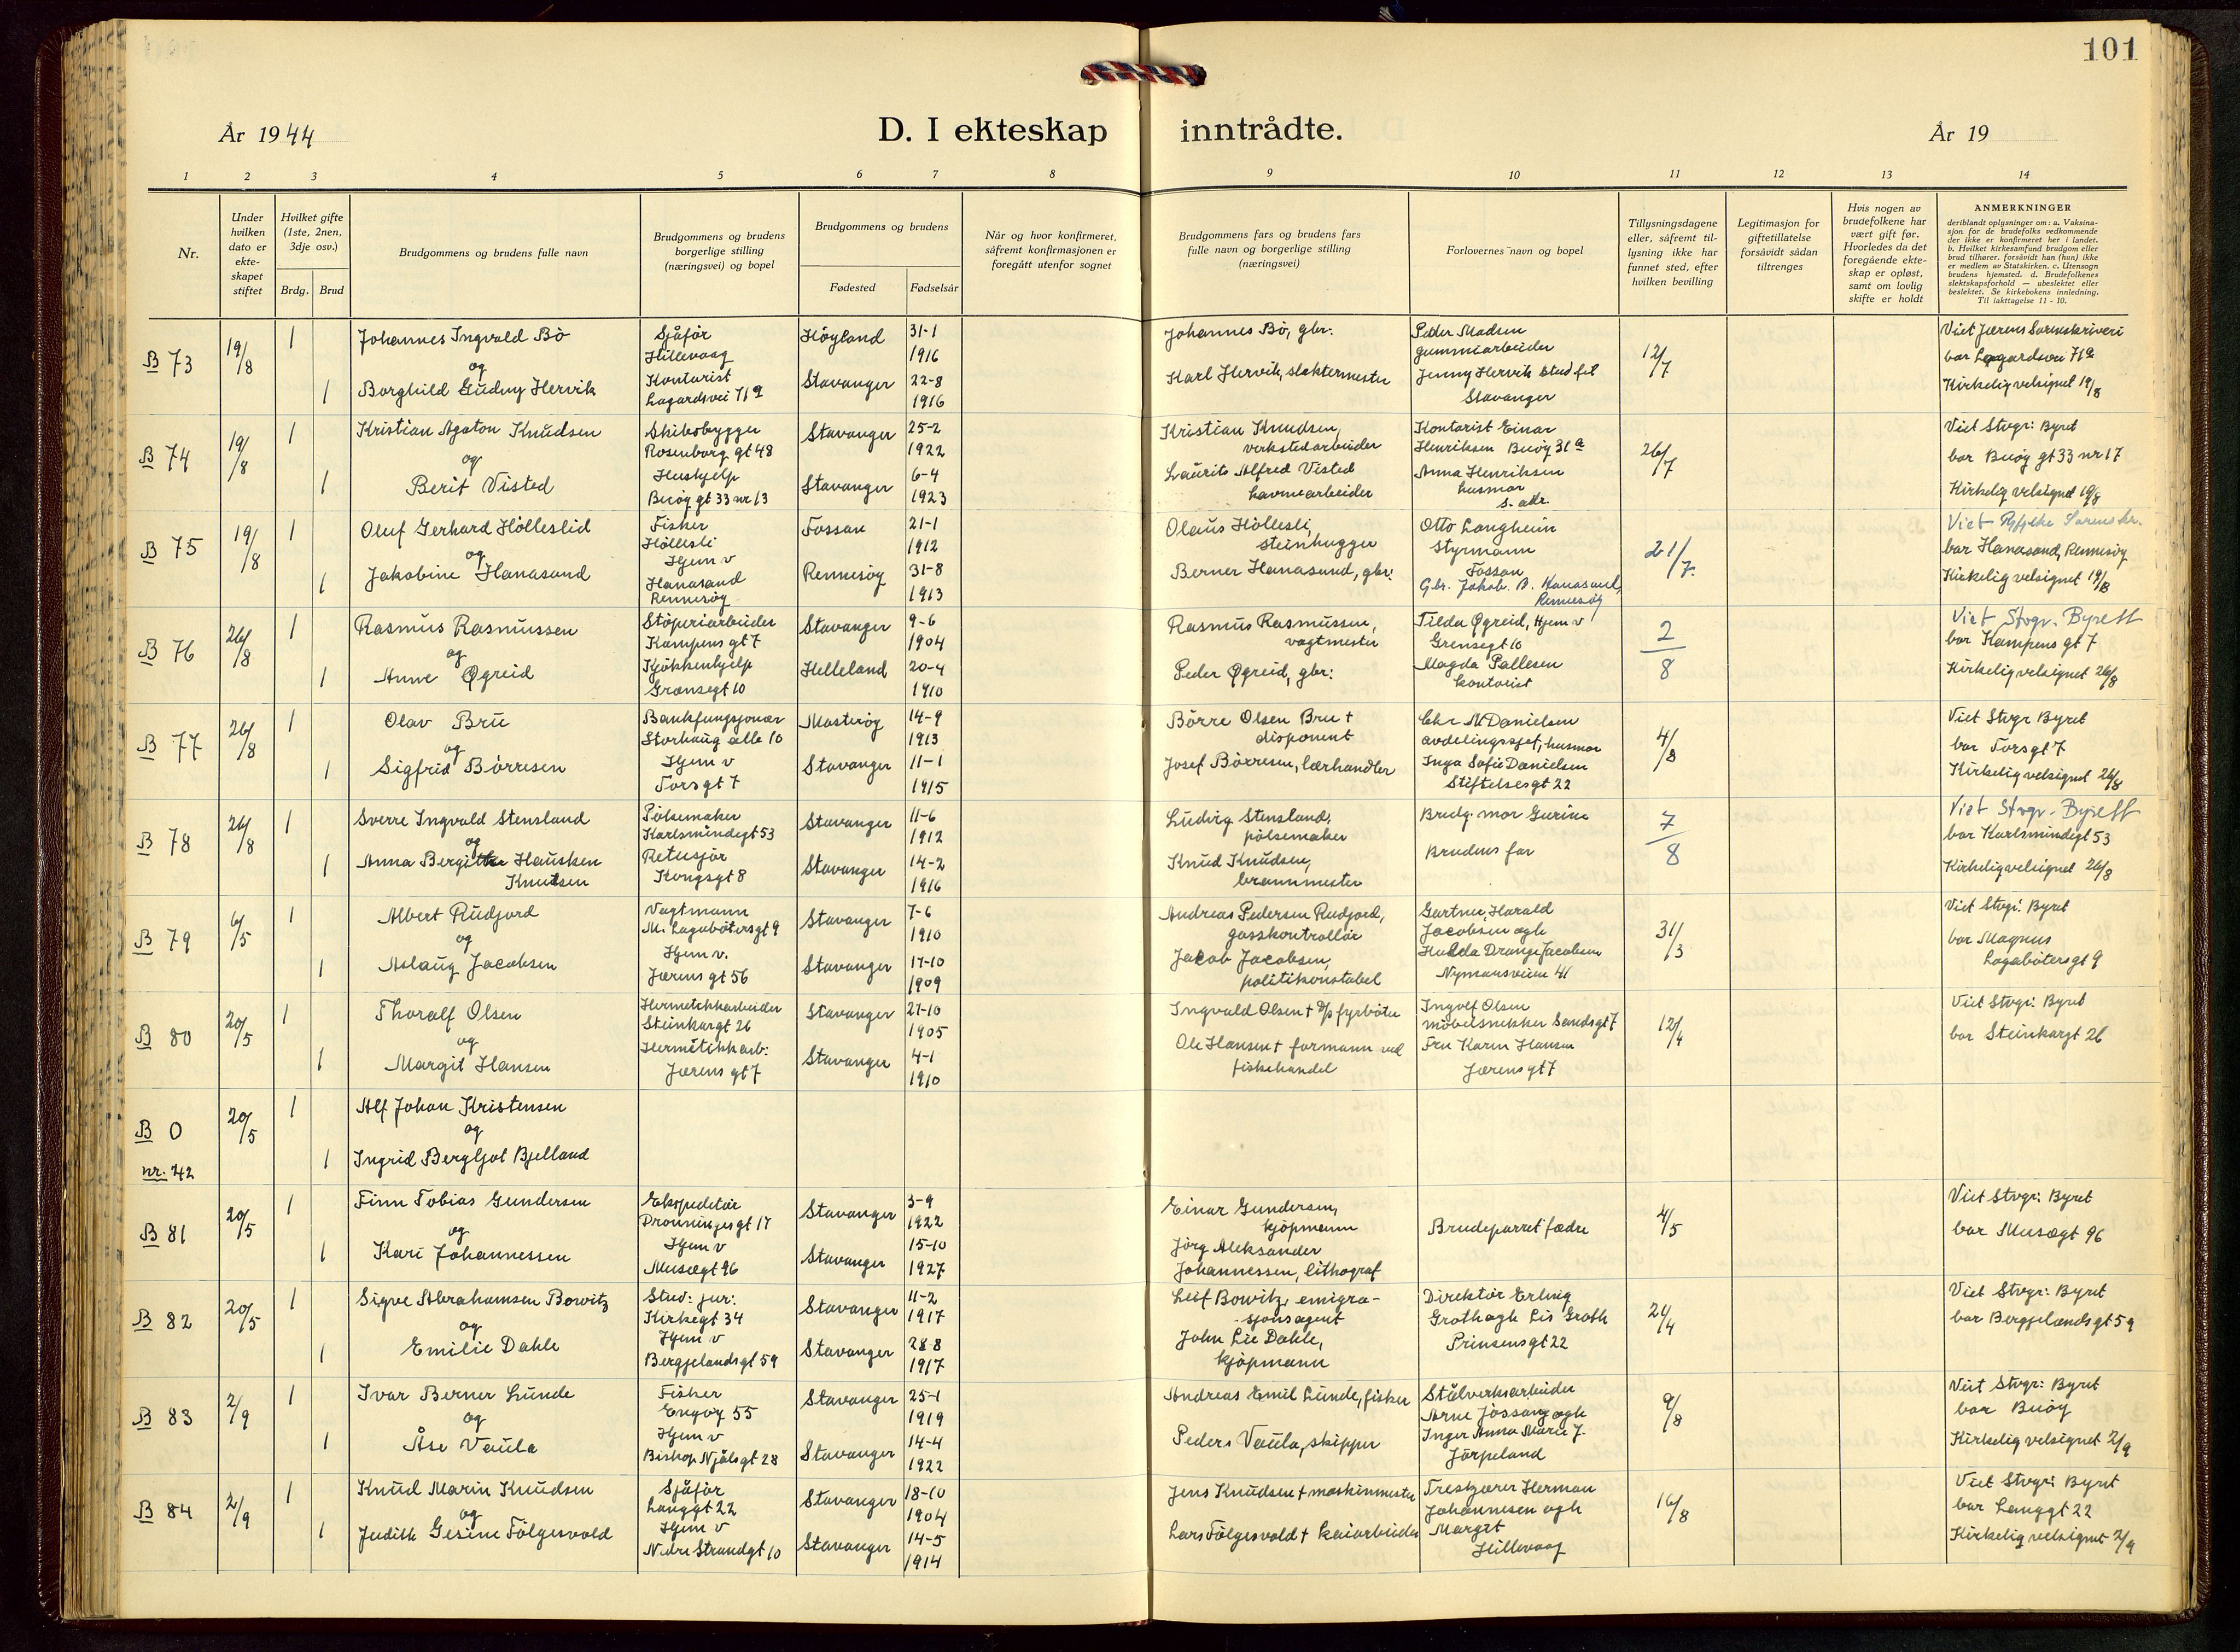 101
År 1944
D. I ekteskap inntrådte.
År 19
1 2 3 4 5 6 7 8 9 10 11 12 13 14
Nr.
Under hvilken dato er ekte-skapet stiftet
Hvilket gifte (1ste, 2nen, 3dje osv.)
Brdg. Brud
Brudgommens og brudens fulle navn
Brudgommens og brudens borgerlige stilling (næringsvei) og bopel
Brudgommens og brudens
Fødested Fødselsår
Når og hvor konfirmeret, såfremt konfirmasjonen er foregått utenfor sognet
Brudgommens fars og brudens fars fulle navn og borgerlige stilling (næringsvei)
Forlovernes navn og bopel
Tillysningsdagene eller, såfremt til-lysning ikke har funnet sted, efter hvilken bevilling
Legitimasjon for giftetillatelse forsåvidt sådan tiltrenges
Hvis nogen av brudefolkene har vært gift før. Hvorledes da det foregående ekte-skap er opløst, samt om lovlig skifte er holdt
ANMERKNINGER
deriblandt oplysninger om: a. Vaksina-sjon for de brudefolks vedkommende der ikke er konfirmeret her i landet. b. Hvilket kirkesamfund brudgom eller brud tilhører, forsåvidt han (hun) ikke er medlem av Statskirken. c. Utensogn brudens hjemsted. d. Brudefolkenes slektskapsforhold — ubeslektet eller beslektet. Se kirkebokens innledning. Til iakttagelse 11 - 10.
B 73 19/8 1 Johannes Ingvald Bö Sjåför Hillevaag Höyland 31-1 1916 Johannes Bö, gbr. Peder Madsen gummiarbeider 12/7 Viet Jærens Sorenskriveri
og
1 Borghild Gudny Hervik Kontorist Lagardsvei 71a Stavanger 22-8 1916 Karl Hervik, slaktermester Jenny Hervik stud fil Stavanger bor Lagardsvei 71a Kirkelig velsignet 19/8
B 74 19/8 1 Kristian Agaton Knudsen Skibsbygger Rosenborg gt 48 Stavanger 25-2 1922 Kristian Knudsen, verkstedarbeider Kontorist Einar Henriksen Buöy 31a 26/7 Viet Stvgr: Byret
og
1 Berit Visted Hushjelp Buöy gt 33 nr 13 Stavanger 6-4 1923 Laurits Alfred Visted havnearbeider Anna Henriksen husmor s. adr. bor Buöy gt 33 nr 17 Kirkelig velsignet 19/8
B 75 19/8 1 Oluf Gerhard Hölleslid Fisker Höllesli Fossan 21-1 1912 Olaus Höllesli, steinhugger Otto Langheim Styrmann Fossan 21/7. Viet Ryfylke Sorenskr.
og
1 Jakobine Hanasand Hjem v Hanasand Rennesöy Rennesöy 31-8 1913 Berner Hanasand, gbr: Gbr. Jakob. B. Hanasand, Rennesöy bor Hanasand, Rennesöy Kirkelig velsignet 19/8
B 76 26/8 1 Rasmus Rasmussen Stöperiarbeider Kampens gt 7 Stavanger 9-6 1904 Rasmus Rasmussen, vagtmester Tilda Øgreid, Hjem v Grensegt 10 2/8 Viet Stvgr. Byrett
og
1 Anne Øgreid Kjökkenhjelp Grensegt 10 Helleland 20-4 1910 Peder Øgreid, gbr: Magda Pallesen kontorist bor Kampens gt 7 Kirkelig velsignet 26/8
B 77 26/8 1 Olav Bru Bankfungsjonær Storhaug alle 10 Mosteröy 14-9 1913 Börre Olsen Bru + disponent Chr N Danielsen avdelingssjef, husmor 4/8 Viet Stvgr Byret
og
1 Sigfrid Börresen Hjem v Torsgt 7 Stavanger 11-1 1915 Josef Börresen, lærhandler Inga Sofie Danielsen Stiftelsesgt 22 bor Torsgt 7 Kirkelig velsignet 26/8
B 78 26/8 1 Sverre Ingvald Stensland Pölsemaker Karlsmindegt 53 Stavanger 11-6 1912 Ludvig Stensland, pölsemaker Brudg. mor Gurine 7/8 Viet Stvgr. Byrett
og
1 Anna Bergitte Hausken Knutsen Retusjör Kongsgt 8 Stavanger 14-2 1916 Knud Knudsen, brannmester Brudens far bor Karlsmindegt 53 Kirkelig velsignet 26/8
B 79 6/5 1 Albert Rudjord Vagtmann M. Lagabötersgt 9 Stavanger 7-6 1910 Andreas Pedersen Rudjord, gasskontrollör Gartner, Harald Jacobsen ogh 31/3 Viet Stvgr: Byret
og
1 Aslaug Jacobsen Hjem v. Jærens gt 56 Stavanger 17-10 1909 Jacob Jacobsen, politikonstabel Hulda Drange Jacobsen Nymansveien 41 bor Magnus Lagabötersgt 9
B 80 20/5 1 Thoralf Olsen Hermetikkarbeider Steinkargt 26 Stavanger 27-10 1905 Ingvald Olsen + D/s fyrböter Ingolf Olsen möbelsnekker Sandsgt 7 12/4 Viet Stvgr: Byret
og
1 Margit Hansen Hermetikkarb: Jærens gt 7 Stavanger 4-1 1910 Ole Hansen + formann ved fiskehandel Fru Karen Hansen Jærens gt 7 bor Steinkargt 26
B 0 20/5 1 Alf Johan Kristensen
og
nr: 42 1 Ingrid Bergljot Bjelland
B 81 20/5 1 Finn Tobias Gundersen Ekspeditör Dronningensgt 17 Stavanger 3-9 1922 Einar Gundersen, kjöpmann Brudeparret fædre 4/5 Viet Stvgr: Byret
og
1 Kari Johannessen Hjem v Musægt 96 Stavanger 15-10 1927 Jörg Aleksander Johannessen, lithograf bor Musægt 96
B 82 20/5 1 Sigve Abrahamsen Bowitz Stud: jur: Kirkegt 34 Stavanger 11-2 1917 Leif Bowitz, emigra-sjonsagent Direktör Erling Grothogh Lis Groth 24/4 Viet Stvgr: Byret
og
1 Emilie Dahle Hjem v Bergjelandsgt 59 Stavanger 28-8 1917 John Lie Dahle, kjöpmann Prinsensgt 22 bor Bergjelandsgt 59
B 83 2/9 1 Ivar Berner Lunde Fisker Engöy 55 Stavanger 25-1 1919 Andreas Emil Lunde, fisker Stålverksarbeider Arne Jössang ogh 9/8 Viet Stvgr: Byret
og
1 Åse Vaula Hjem v Biskop Njålsgt 28 Stavanger 14-4 1922 Peders Vaula, skipper Inger Anna Marie J. Jörpeland bor Buöy Kirkelig velsignet 2/9
B 84 2/9 1 Knud Marin Knudsen Sjåför Langgt 22 Stavanger 18-10 1904 Jens Knudsen + maskinmester Treskjærer Herman Johannesen ogh 16/8 Viet Stvgr: Byret
og
1 Judith Gesine Fölgesvold Hjem v Nedre Strandgt 10 Stavanger 14-5 1914 Lars Fölgesvold + kaiarbeider Margit Hillevaag bor Langgt 22 Kirkelig velsignet 2/9